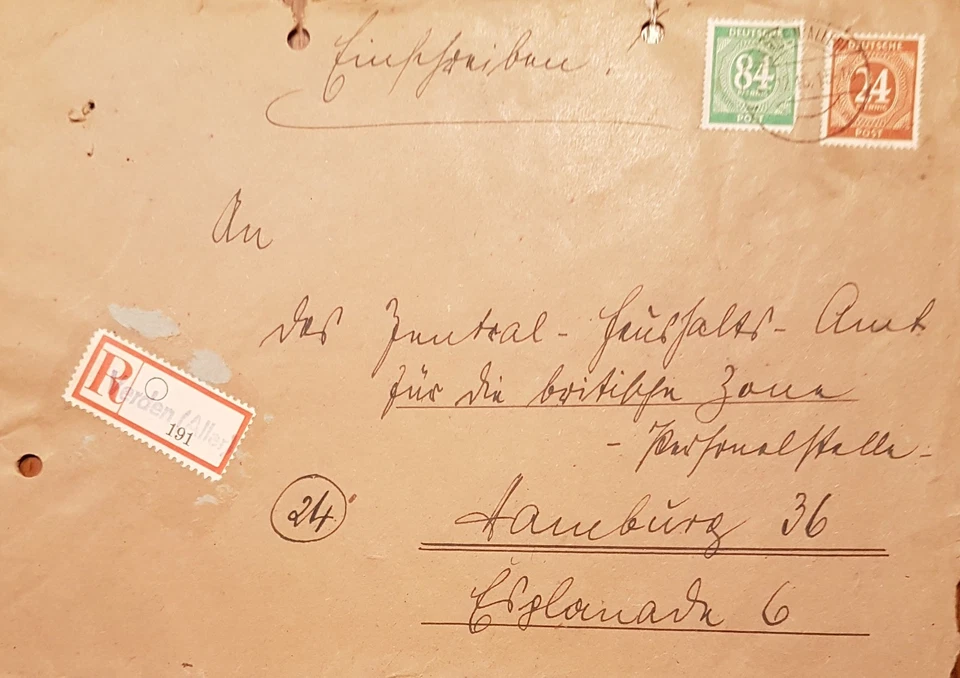 Einschreiben.
DEUTSCHE
84
PFENNIG
POST
DEUTSCHE
24
PFENNIG
POST
An
das Zentral-Haushalts-Amt
für die britische Zone
- Personalstelle -
R
Verden (Aller)
191
24
Hamburg 36
Esplanade 6